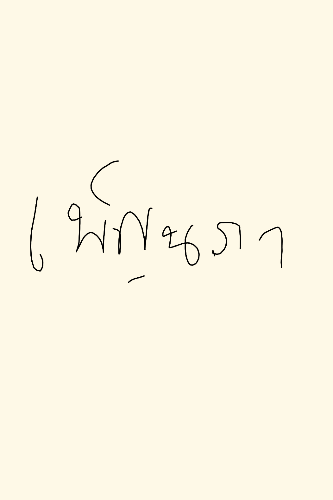 เพ็ญนภา